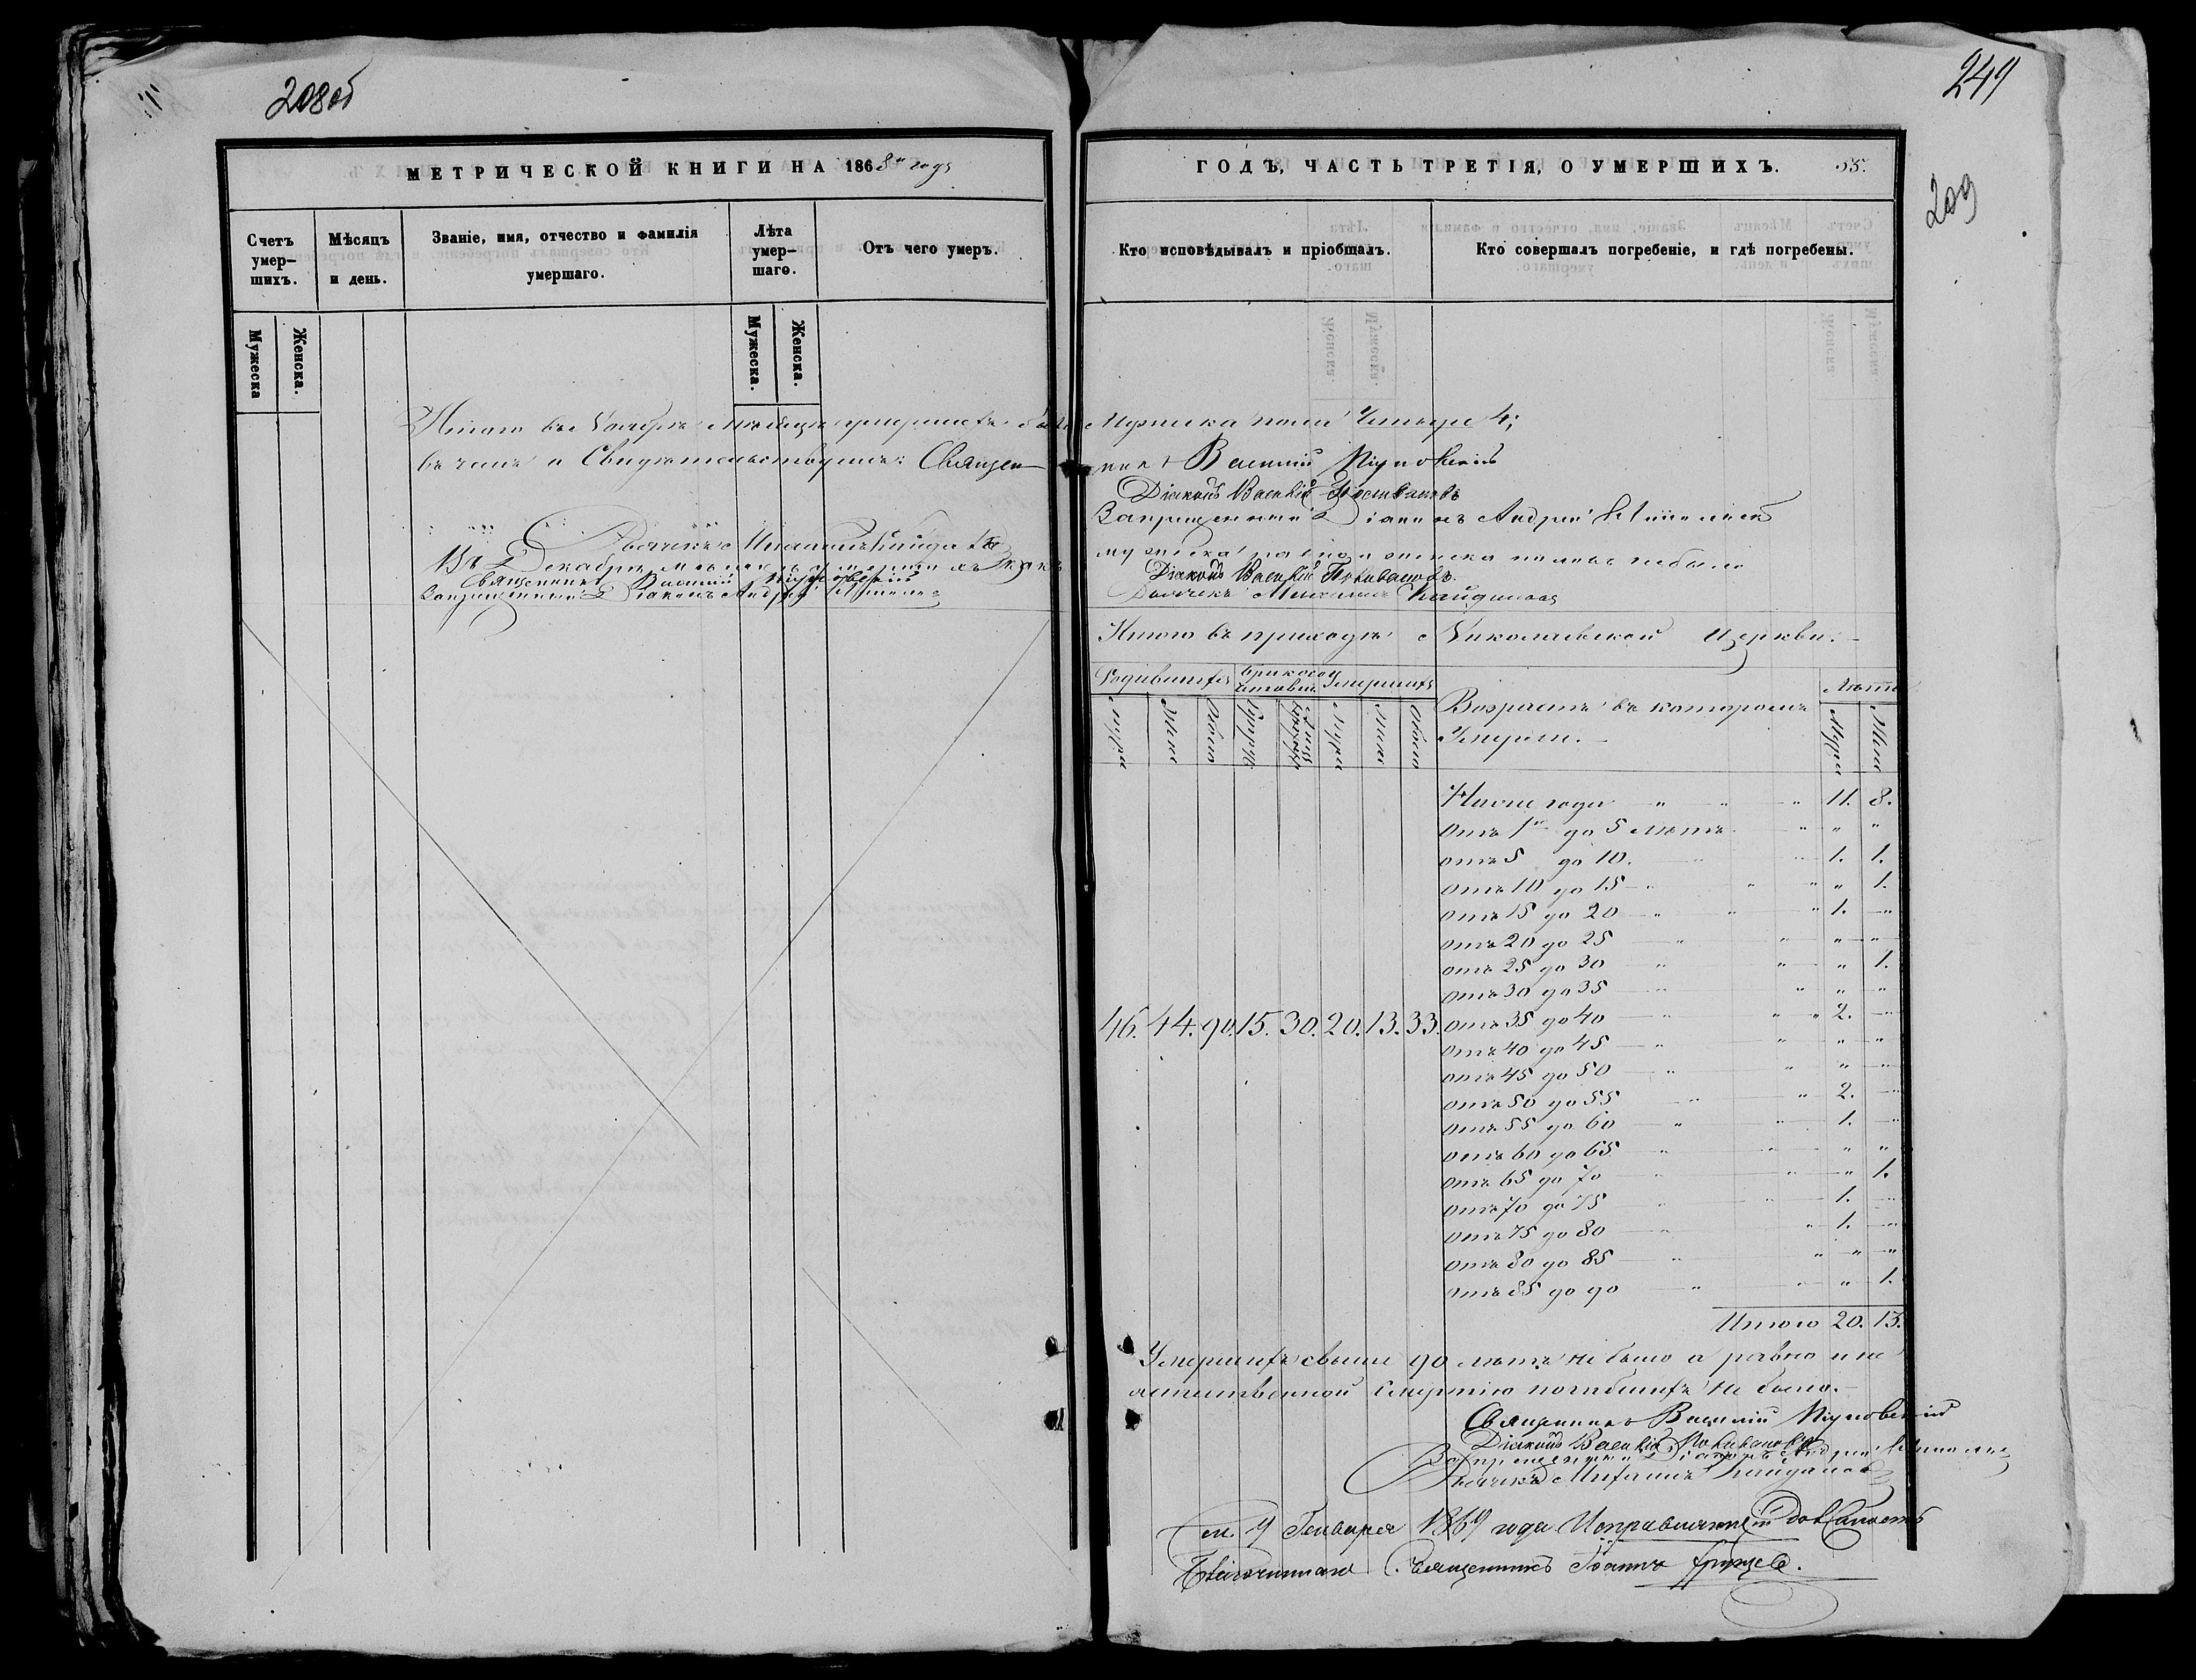 208об
МЕТРИЧЕСКОЙ КНИГИ НА 1868й годъ
Счетъ умер-шихъ.
Мѣсяцъ и день.
Званіе, имя, отчество и фамилія умершаго.
Лѣта умер-шаго.
Отъ чего умеръ.
Мужеска
Женска.
Мужеска.
Женска.
249
209
ГОДЪ, ЧАСТЬ ТРЕТІЯ, О УМЕРШИХЪ. 55.
Кто исповѣдывалъ и пріобщалъ.
Кто совершалъ погребеніе, и гдѣ погребены.
Итого въ Ноябрѣ мѣсяцѣ умершихъ было Мужеска пола Четыре 4;
въ чемъ и Свидѣтельствуемъ: Священникъ Василій
Діаконъ Василій
Запрещенный Діаконъ Андрей
Дьячекъ
Въ Декабрѣ мѣсяцѣ умершихъ какъ мужеска равно и женска половъ небыло
Священникъ Василій
Діаконъ Василій
Запрещенный Діаконъ Андрей
Дьячекъ
Итого въ приходѣ Николаевской Церкви.
Родившихся
Бракосочетавш
Умершихъ
Возрастъ въ которомъ Умерли.
Лѣта
Муж
Жен
Обоего
Муж
Жен
Обоего
Муж
Жен
46. 44. 90. 15. 30. 20. 13. 33.
Ниже года " " " 11. 8.
отъ 1го до 5 лѣтъ " " "
отъ 5 до 10. 1. 1.
отъ 10 до 15 " " " " 1.
отъ 15 до 20 " " " 1. "
отъ 20 до 25 " " " "
отъ 25 до 30 " " " 1.
отъ 30 до 35 " " " "
отъ 35 до 40 " " " 2. "
отъ 40 до 45 " " " "
отъ 45 до 50 " " " "
отъ 50 до 55 " " 2. "
отъ 55 до 60 " " 1. "
отъ 60 до 65 " " " "
отъ 65 до 70 " " " 1.
отъ 70 до 75 " " 1. "
отъ 75 до 80 " " 1. "
отъ 80 до 85 " " " "
отъ 85 до 90 " " " 1.
Итого 20. 13.
Умершихъ свыше 90 лѣтъ не было а равно и не
естественной смертію погибшихъ не было.
Священникъ Василій
Діаконъ Василій
Запрещенный Діаконъ Андрей
Дьячекъ
9 Генваря 1869 года Исправляющій должность
Благочиннаго Священникъ Іоаннъ